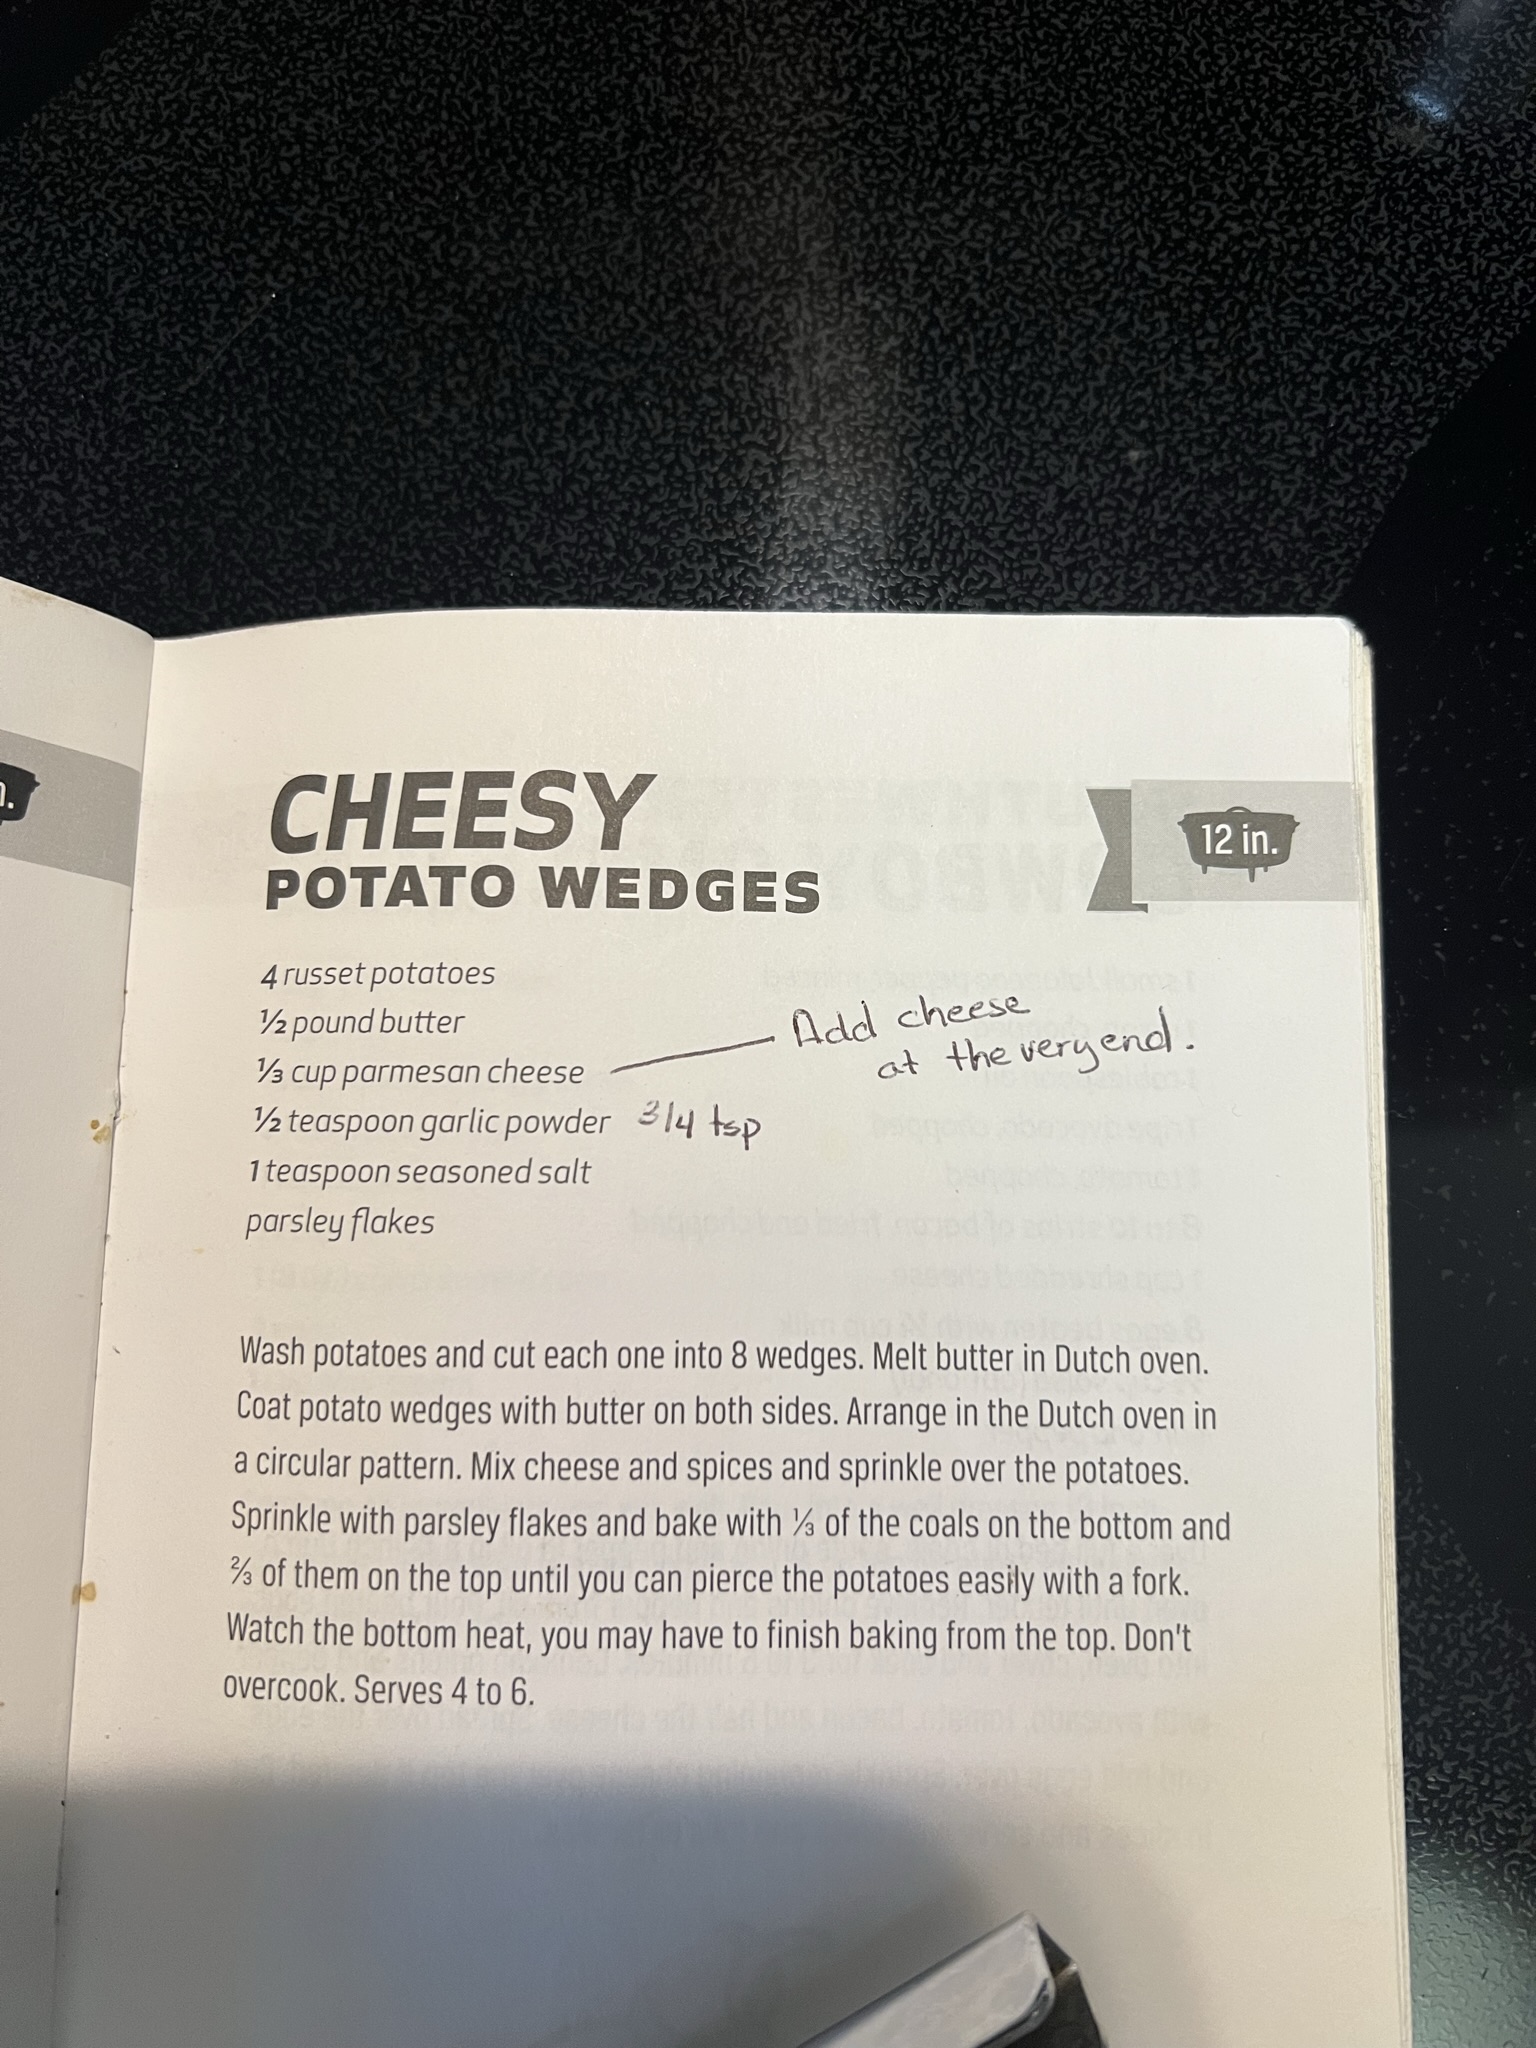 CHEESY
POTATO WEDGES
12 in.
4 russet potatoes
½ pound butter
⅓ cup parmesan cheese
Add cheese
at the very end.
½ teaspoon garlic powder 3/4 tsp
1 teaspoon seasoned salt
parsley flakes
Wash potatoes and cut each one into 8 wedges. Melt butter in Dutch oven.
Coat potato wedges with butter on both sides. Arrange in the Dutch oven in
a circular pattern. Mix cheese and spices and sprinkle over the potatoes.
Sprinkle with parsley flakes and bake with ⅓ of the coals on the bottom and
⅔ of them on the top until you can pierce the potatoes easily with a fork.
Watch the bottom heat, you may have to finish baking from the top. Don't
overcook. Serves 4 to 6.